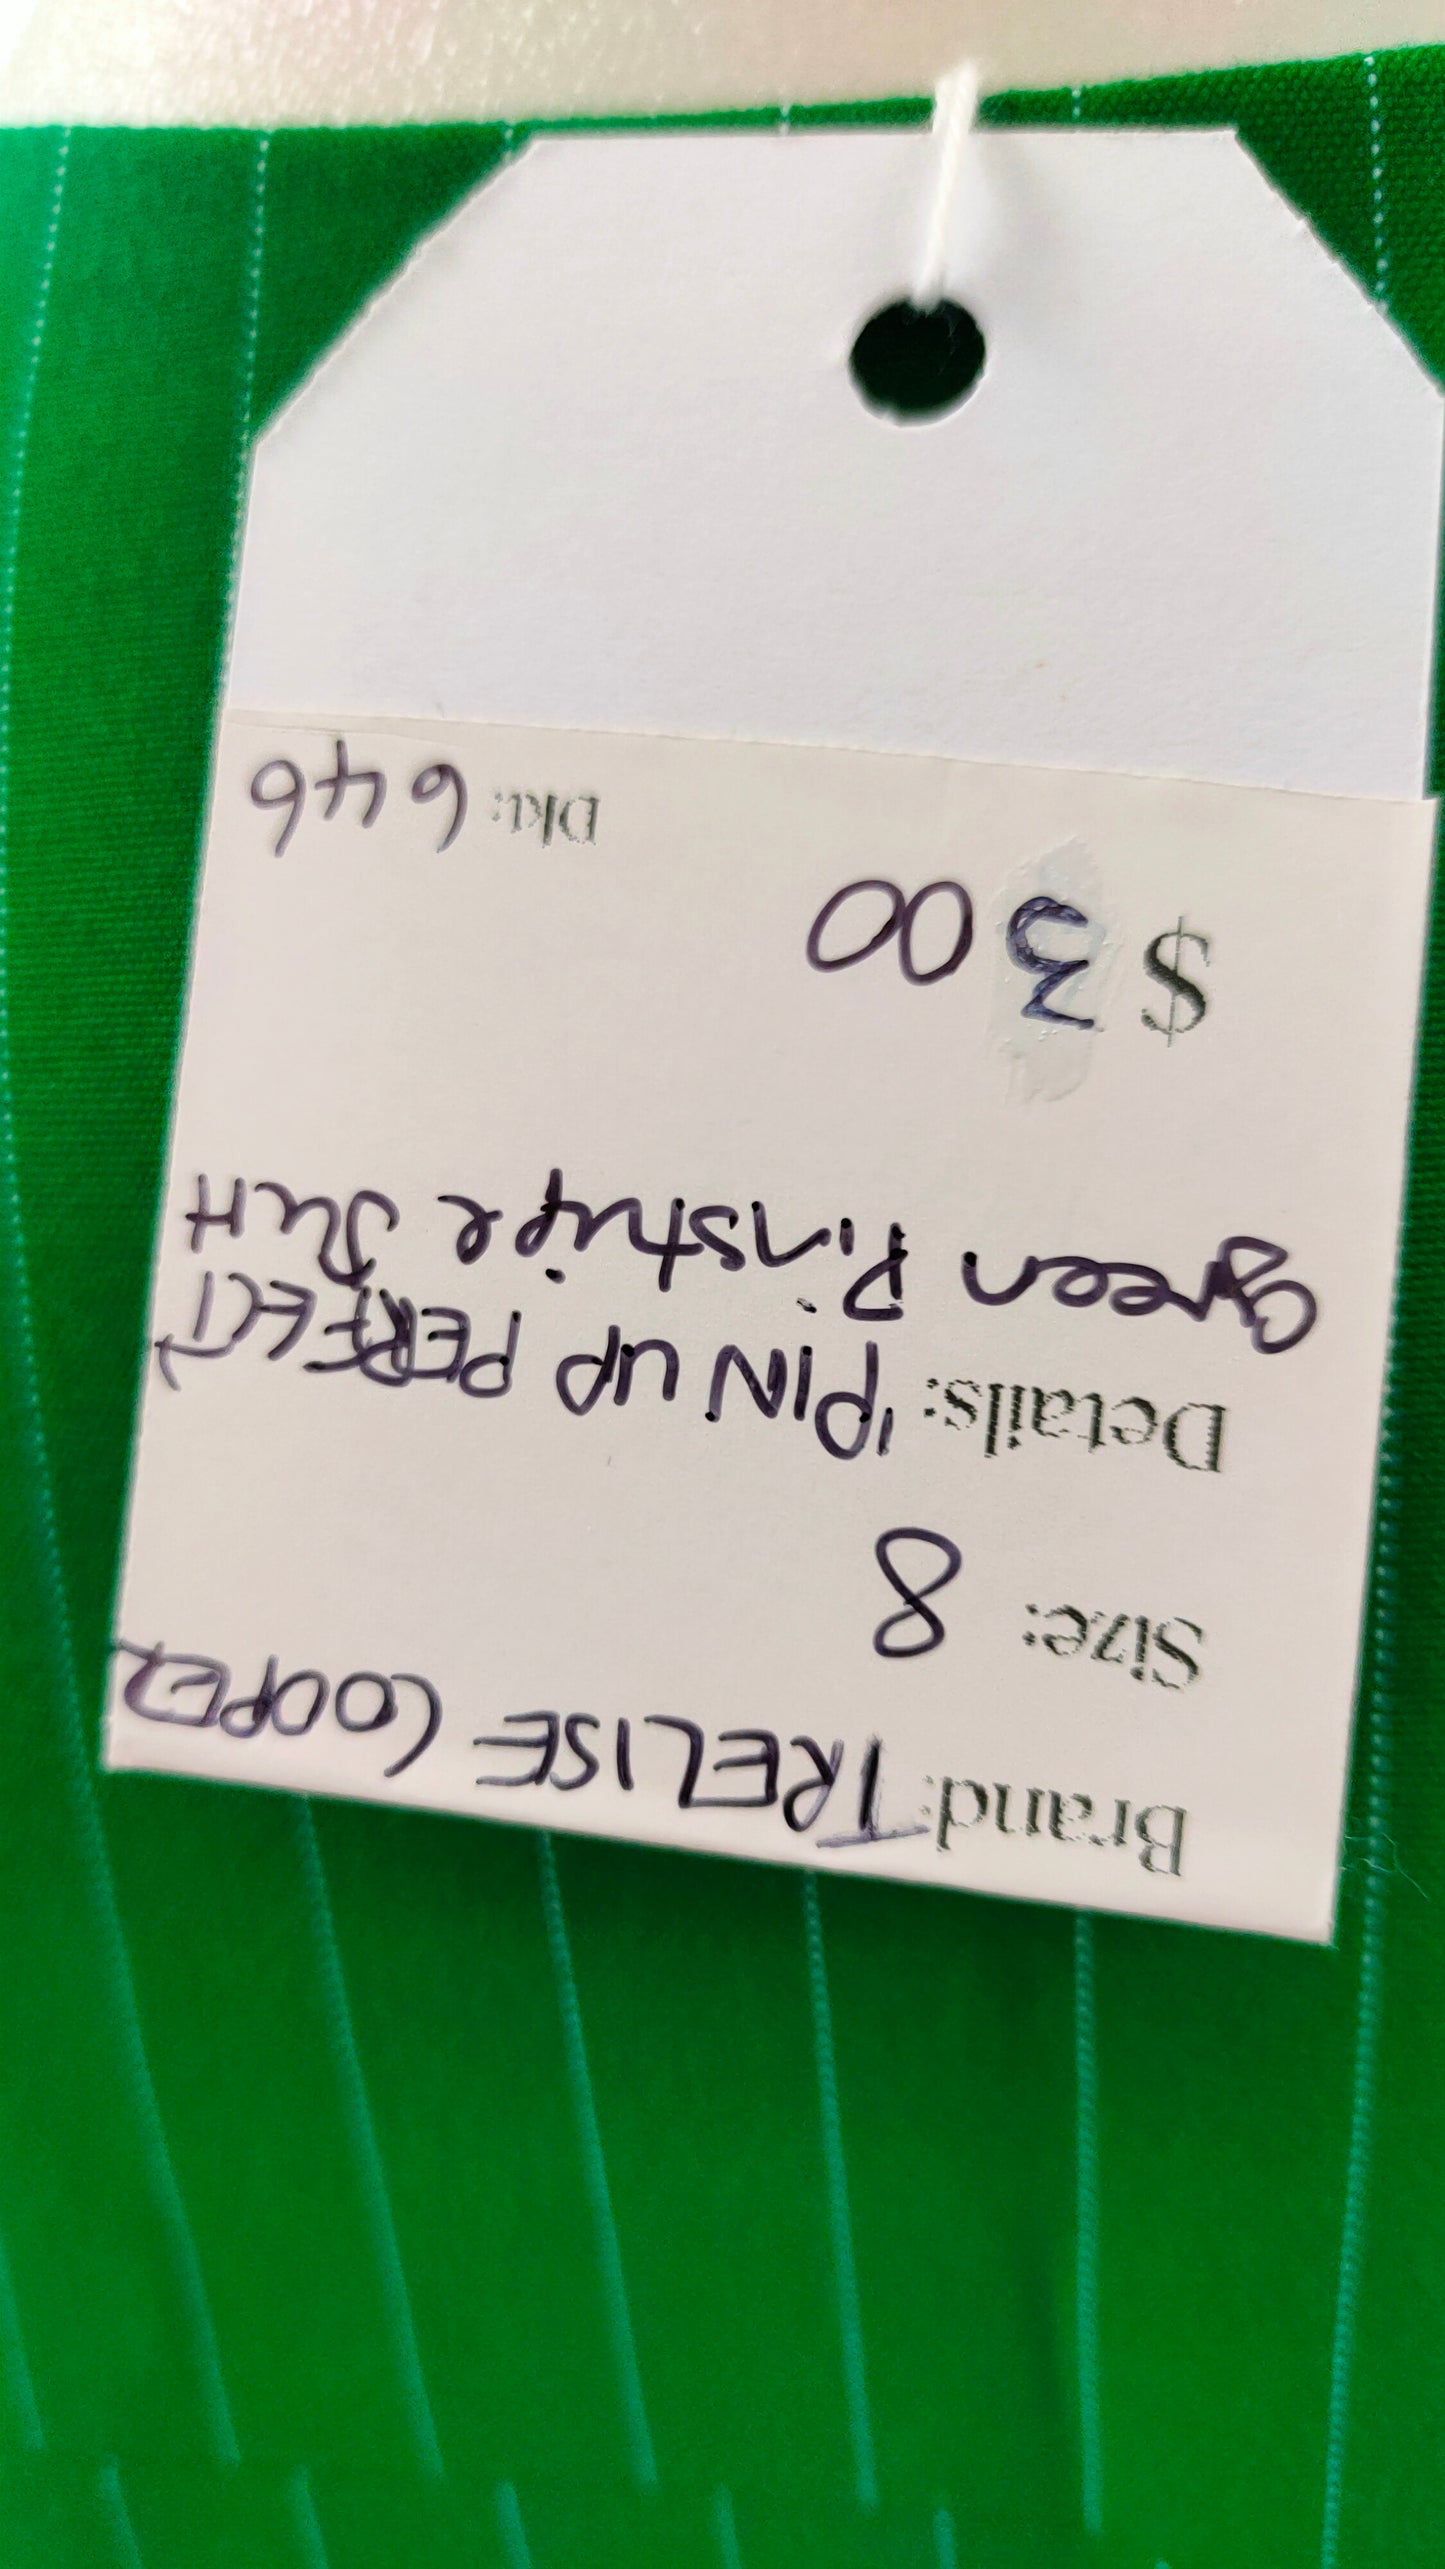 Brand: TRELISE COOPER
Size: 8
Details: 'PIN UP PERFECT'
green Pinstripe Suit
$ 300
Dkt: 646